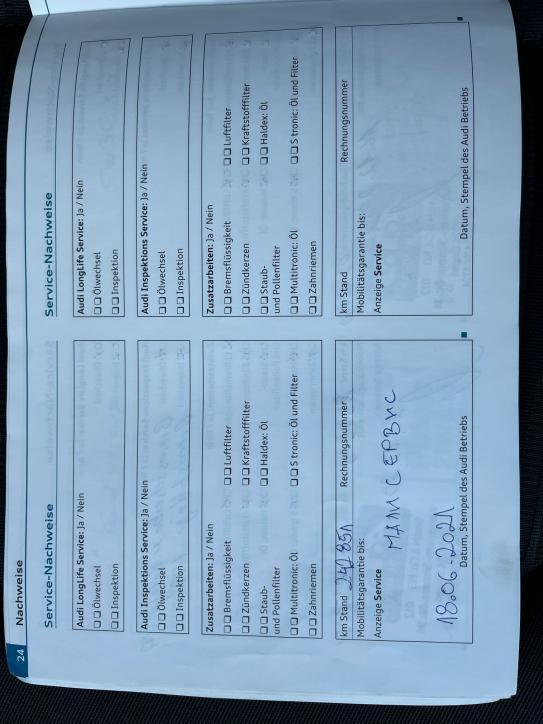 24 Nachweise
Service-Nachweise
Audi LongLife Service: Ja / Nein
Ölwechsel
Inspektion
Audi Inspektions Service: Ja / Nein
Ölwechsel
Inspektion
Zusatzarbeiten: Ja / Nein
Bremsflüssigkeit Luftfilter
Zündkerzen Kraftstofffilter
Staub- Haldex: Öl
und Pollenfilter
Multitronic: Öl S tronic: Öl und Filter
Zahnriemen
km Stand Rechnungsnummer
Mobilitätsgarantie bis:
Anzeige Service
СЕРВИС
18.06.2021
Datum, Stempel des Audi Betriebs
Service-Nachweise
Audi LongLife Service: Ja / Nein
Ölwechsel
Inspektion
Audi Inspektions Service: Ja / Nein
Ölwechsel
Inspektion
Zusatzarbeiten: Ja / Nein
Bremsflüssigkeit Luftfilter
Zündkerzen Kraftstofffilter
Staub- Haldex: Öl
und Pollenfilter
Multitronic: Öl S tronic: Öl und Filter
Zahnriemen
km Stand Rechnungsnummer
Mobilitätsgarantie bis:
Anzeige Service
Datum, Stempel des Audi Betriebs